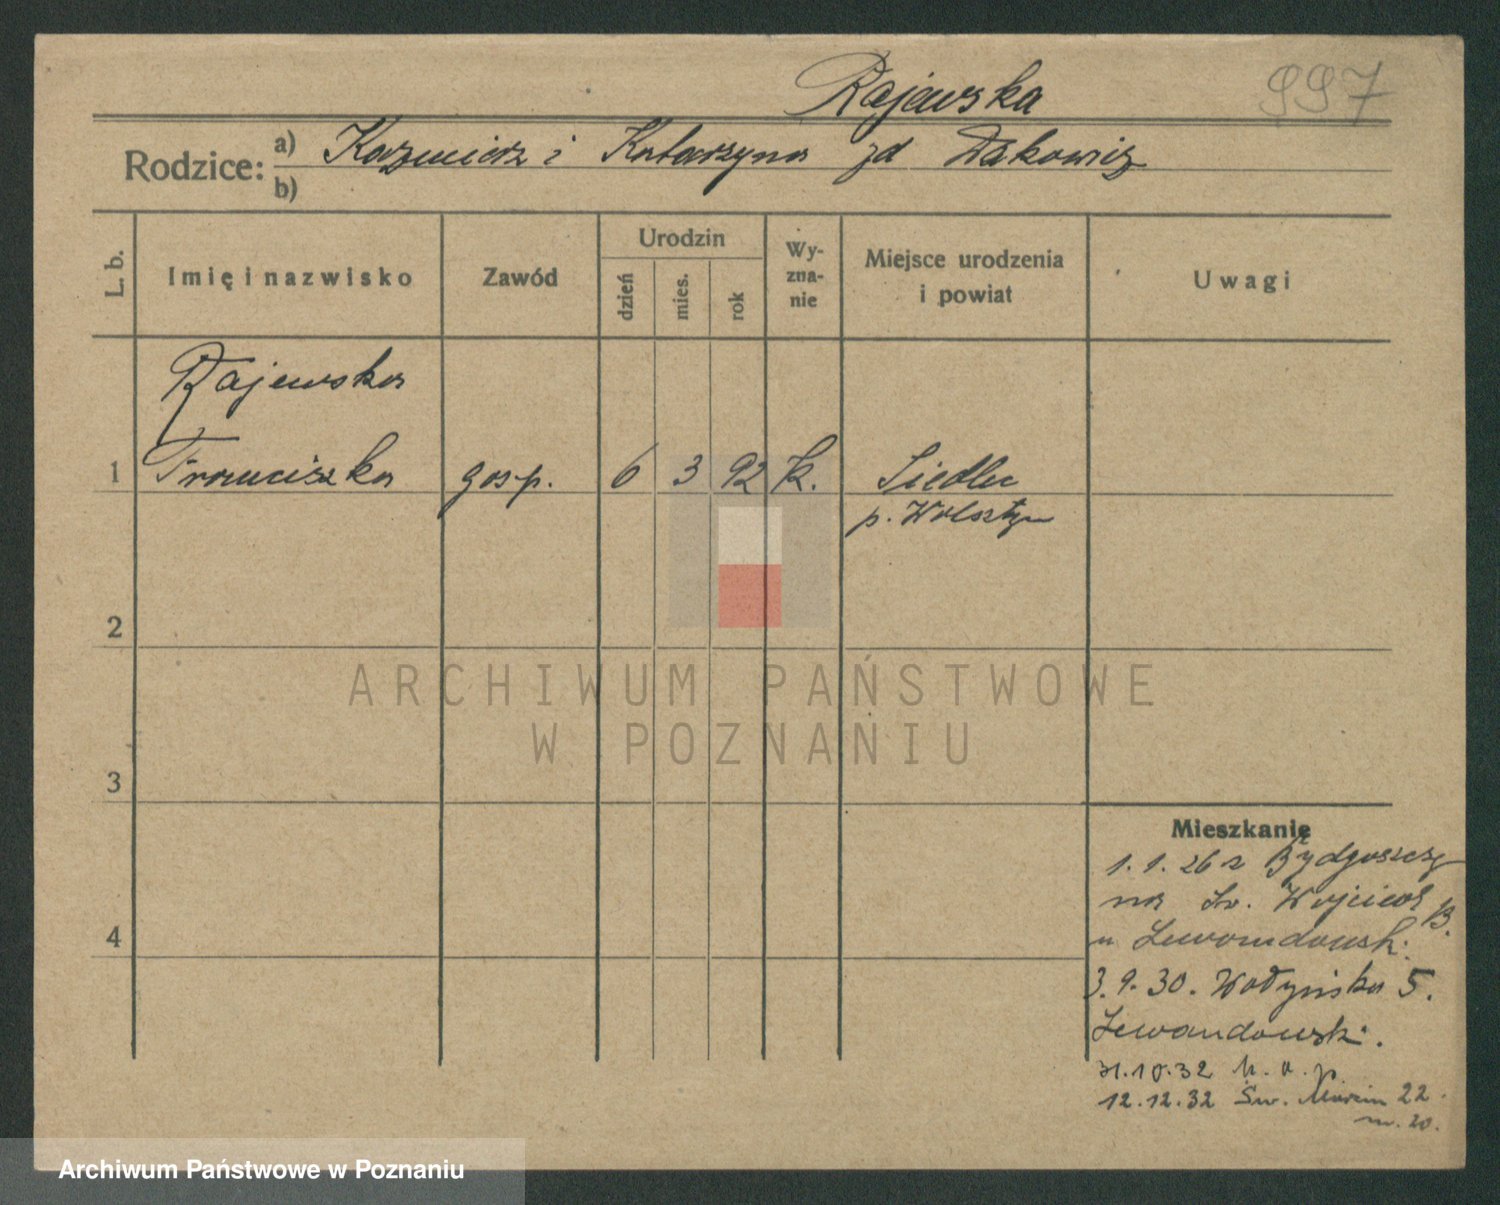 Rajewska
997
Rodzice: a) Kazmierz i Katarzyna zd
b)
L. b.
Imię i nazwisko
Zawód
Urodzin
dzień
mies.
rok
Wy-
zna-
nie
Miejsce urodzenia
i powiat
Uwagi
Rajewska
1 Franciszka gosp. 6 3 92 k. Siedlec
p. Wolsztyn
2
3
4
ARCHIWUM PAŃSTWOWE
W POZNANIU
Mieszkanie
1.1.26 z Bydgoszczy
na Św. Wojciech
u Lewandowsk.
3.9.30. Wołyńska 5.
Lewandowski.
31.10.32
12.12.32 Św. Marcin 22.
m. 20.
Archiwum Państwowe w Poznaniu